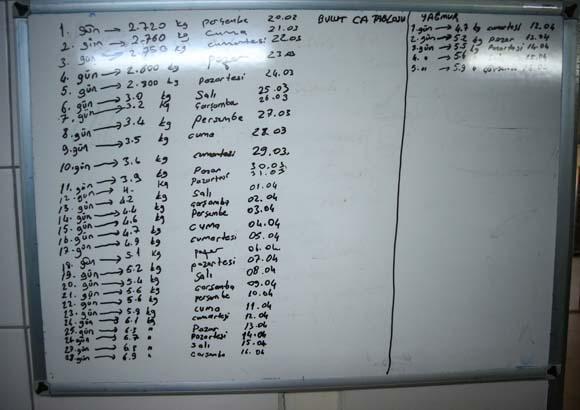 1. gün → 2.720 kg perşembe 20.03
2. gün → 2.760 kg cuma 21.03
3. gün → 2.750 kg cumartesi 22.03
4. gün → 2.800 kg pazar 23.03
5. gün → 2.900 kg pazartesi 24.03
6. gün → 3.0 kg Salı 25.03
7. gün → 3.2 kg Çarşamba 26.03
8. gün → 3.4 kg perşembe 27.03
9. gün → 3.5 kg cuma 28.03
10. gün → 3.6 kg cumartesi 29.03.
11. gün → 3.9 kg Pazar 30.03.
12. gün → 4. kg Pazartesi 31.03
13. gün → 4.2 kg Salı 01.04
14. gün → 4.4 kg Çarşamba 02.04
15. gün → 4.6 kg Perşembe 03.04
16. gün → 4.7 kg cuma 04.04
17. gün → 4.9 kg cumartesi 05.04
18. gün → 5.1 kg pazar 06.04.
19. gün → 5.2 kg pazartesi 07.04
20. gün → 5.4 kg Salı 08.04
21. gün → 5.6 kg Çarşamba 09.04
22. gün → 5.6 kg perşembe 10.04
23. gün → 5.9 kg cuma 11.04
24. gün → 6.1 kg cumartesi 12.04
25. gün → Pazar 13.04
26. gün → 6.7 " Pazartesi 14.04
27. gün → " Salı 15.04
28. gün → 6.9 " Çarşamba 16.04
BULUT CA TABLOSU
YAĞMUR
1. gün → 4.7 kg cumartesi 12.04
2. gün → 5.2 kg pazar 13.04
3. gün → 5.5 kg Pazartesi 14.04
4. "
5. " → 5.9 " Çarşamba